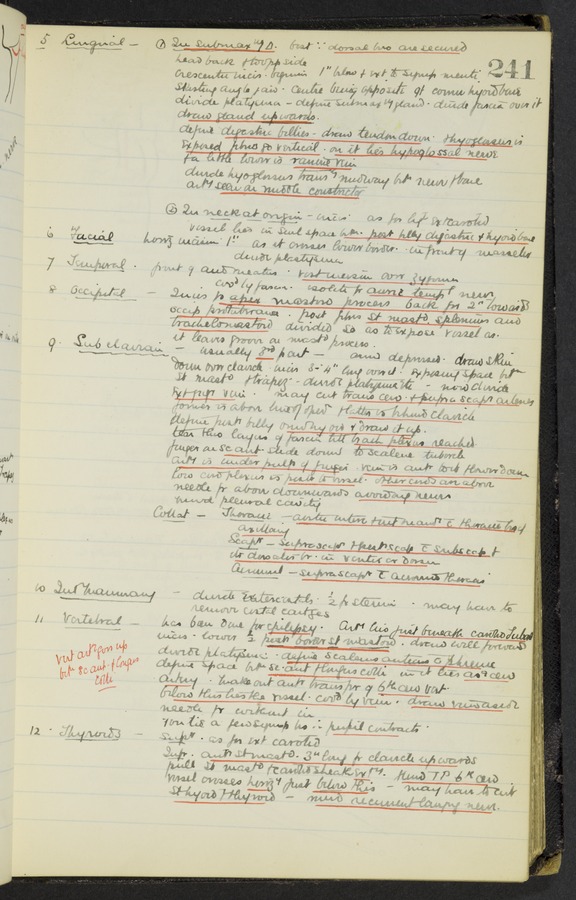 241
5 Lingual — ① In submaxy Δ. best ∵ dorsal bro are secured
head back & to opp side
Crescentic incis. beginning 1" below & ext to symph menti
skirting angle jaw. centre being opposite gt cornu hyoid bone
divide platysma - define submaxy gland. divide fascia over it
draw gland upwards.
define digastric bellies. draw tendon down. Hyoglossus is
exposed fibres go vertical. on it lies hypoglossal nerve
& a little lower is ranine vein
divide hyoglossus transly midway btn nerve & bone
arty seen on middle constrictor
② In neck at origin - incis as for lig ext carotid
vessel lies in small space btn post belly digastric & hyoid bone
6 Facial horiz incision 1" as it crosses lower border in front of masseter
divide platysma
7 Temporal. front of aud meatus. vert incision over zygoma
covd by fascia. isolate fr auric templ nerve
8 Occipital — Incis fr apex mastoid process back for 2" towards
occip protuberance. post fibres St mast splenius and
trachelomastoid divided so as to expose vessel as
it leaves groove on mastd process.
9. Subclavian — usually 3rd part — arm depressed. draw skin
down over clavicle incis 3-4" long over it. exposing space btn
St mastd & trapez - divide platysma - now divide
Ext jug vein. may cut transv cerv & suprascap arteries
former is above line of oper & latter is behind clavicle
define post belly omohyoid & draw it up.
tear thro layers of fascia till brach plexus reached
finger on sc ant slide down to scalene tubercle
arty is under pulp of finger. vein is ant to & lower down
low cord plexus is post to vessel. other cords are above
needle fr above downwards avoiding nerves
avoid pleural cavity
Collat — Thoracic — aortic inter & int mam c̄ thoracic br of
axillary
Scapr — suprascapr & post scap c̄ subscap &
its dorsalis br. in venter or dorsm
Acromial — suprascapr c̄ acromio thoracic
10 Int Mammary — divide intercostls ½" fr sternm. may have to
remove costal cartges
11 Vertebral — has been done for epilepsy. Arty lies just beneath carotid tubercle
incis. lower ½ post border st mastoid. draw well forward
divide platysma. define scalenus anticus & phrenic
define space btn sc ant & longus colli in it lies asc cerv
artery. make out ant transv pr of 6th cerv vert
below this lies the vessel. covd by vein. draw vein aside
needle fr without in
You tie a few symp br ∴ pupil contracts
vert arty goes up
btn sc ant & longus
colli
12. Thyroids — Supr. as for ext carotid
Infr. ant st mastd. 3" long fr clavicle upwards
pull St mastd & carotid sheath extly. Find TP 6th cerv
Vessel crosses horizly just below this — may have to cut
St hyoid & thyroid — avoid recurrent laryng nerve.